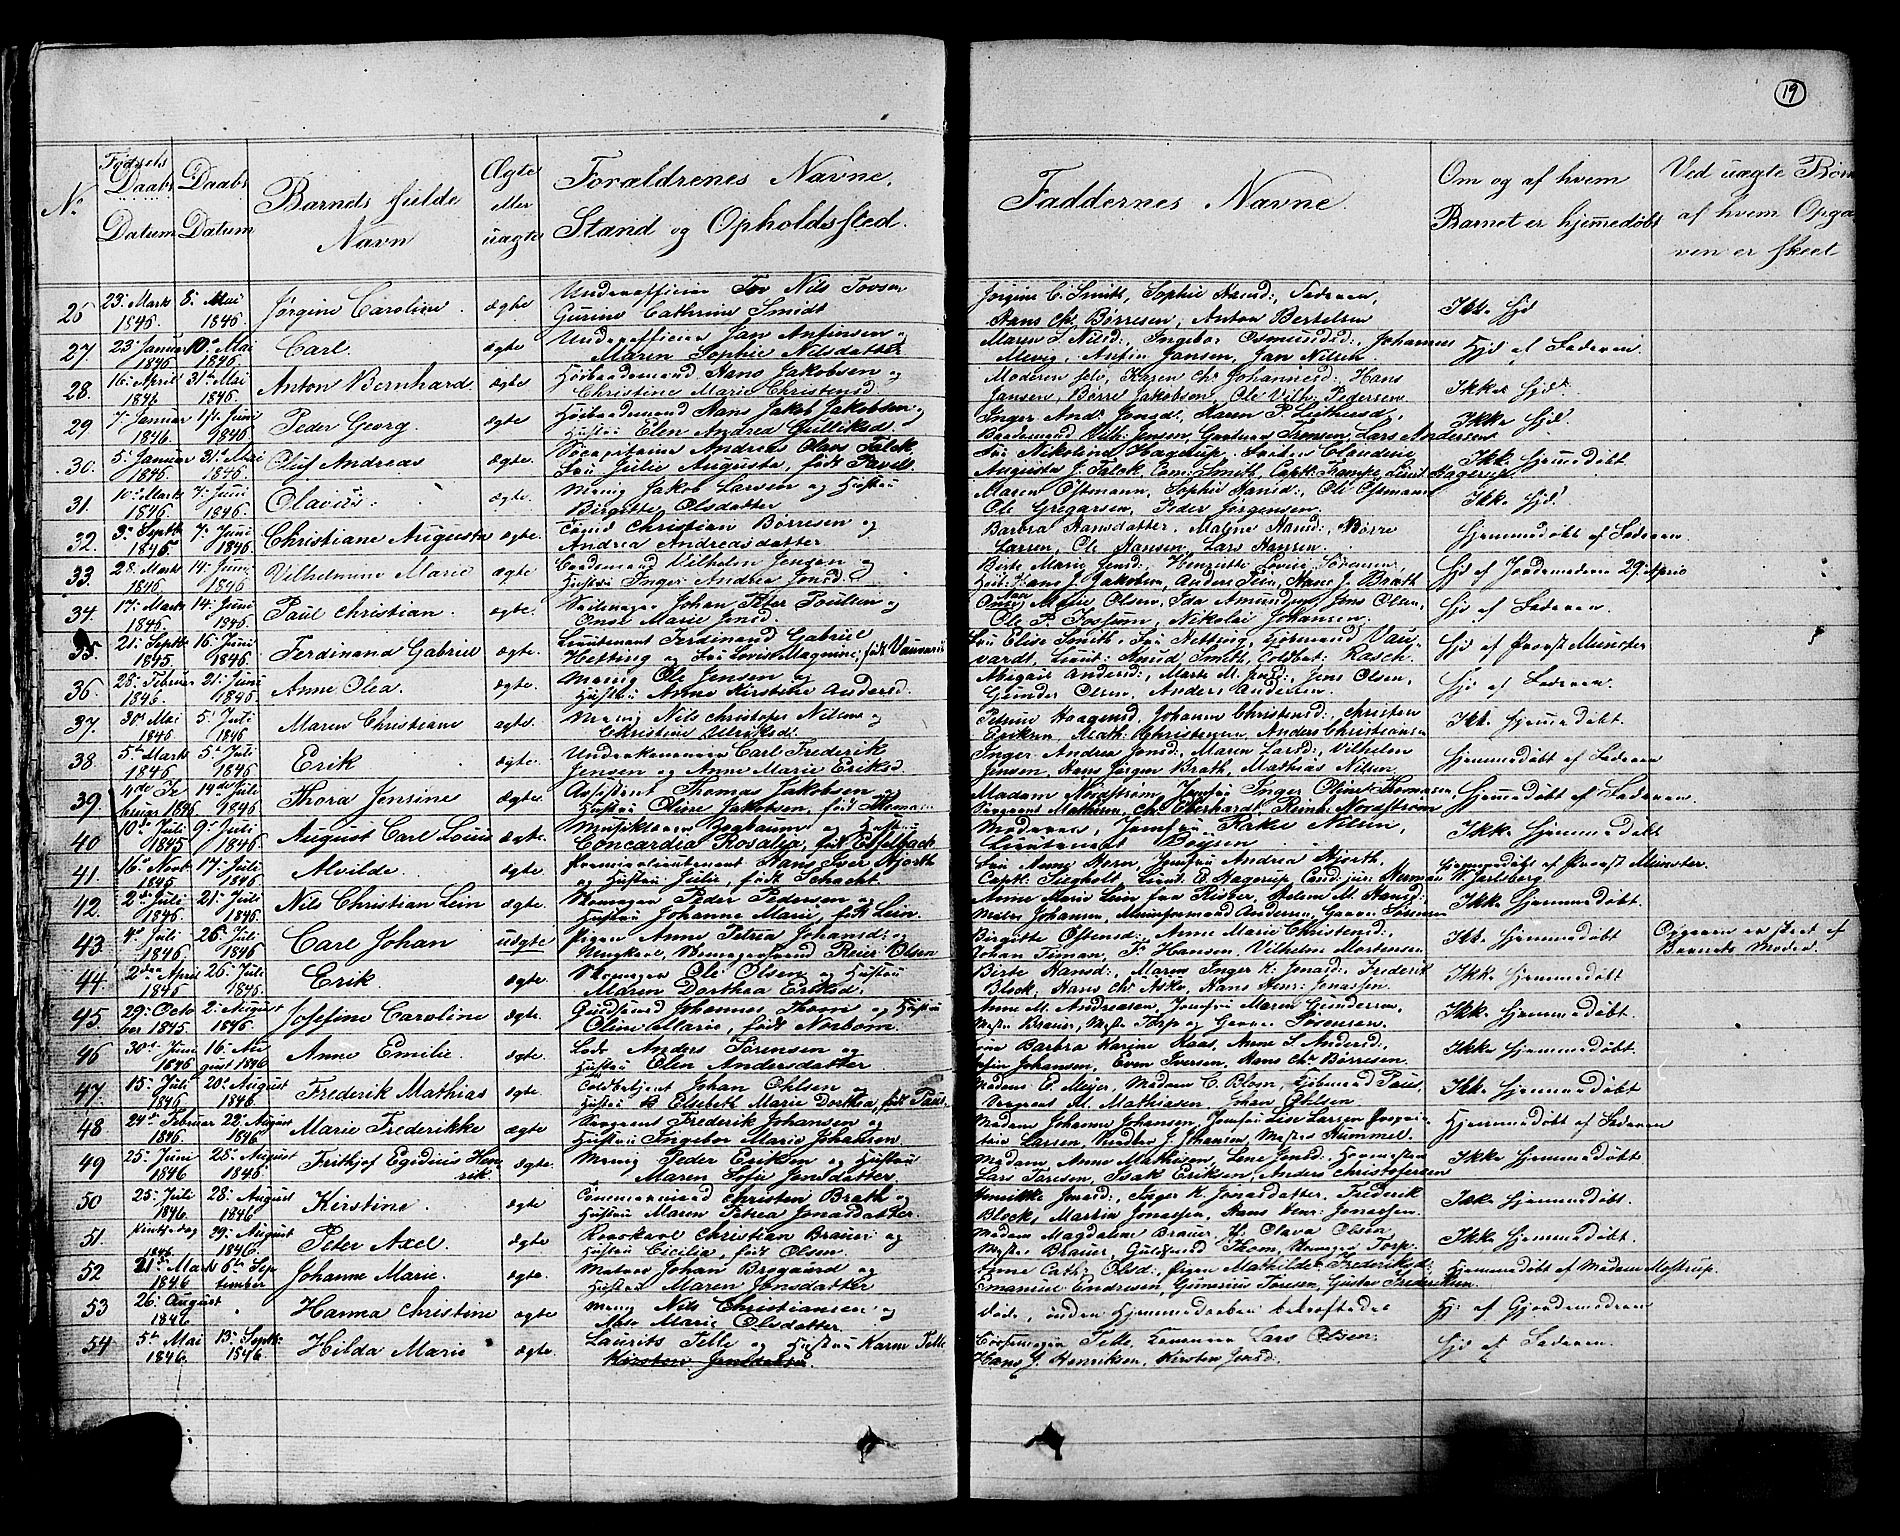 19
No. Fødsels Daabs Datum Daabs Datum Barnets fulde Navn Ægte eller uægte Forældrenes Navne, Stand og Opholdssted. Faddernes Navne. Om og af hvem Barnet er hjemmedøbt Ved uægte Børn af hvem Opgaven er skeet
26 23: Marts 1846 8: Mai 1846 Jørgine Caroline. ægte Underofficier Tov Nils Tovsen Gurine Cathrine Smidt Jørgine C. Smith, Sophie Hansd:, Faderen, Hans Chr. Børresen, Anton Bertelsen Ikke Hjd
27. 23 Januar 1846 10de Mai 1846. Carl. ægte Underofficier Jan Antinsen og Maren Sophie Nilsdatter Maren S. Nilsd:, Ingebor Osmundsd:, Johannes Jansen, Jan Nilsen. Hjd af Faderen.
28. 16: April 1846 31te Mai 1846. Anton Bernhard. ægte Hans Jakobsen og Christine Marie Christensd. Moderen selv, Karen Chr. Johannesd: Hans Jansen, Børre Jakobsen, Ole Vilh: Pedersen Ikke Hjd.
29. 7: Januar 1846. 14: Juni 1846 Peder Georg. ægte Hans Jakob Jakobsen og Hustru Elen Andrea Gulliksd. Inger And. Jonsd:, Karen P. Vilh: Jensen, Lars Andersen Ikke Hjd.
30. 5: Januar 1846. 31te Mai 1846. Oluf Andreas ægte. Andreas Olaus Falck Fru Julie Augusta, født Pavels Fru Nikoline Hagerup, Frøken Claudine Augusta J. Falck, Smith, Capt: Hagerup Ikke Hjemmedøbt
31. 10: Marts 1846 7: Juni 1846 Olavus. ægte. Menig Jakob Larsen og Hustru Birgitte Olsdatter Maren Ostmann, Sophie Hansd:, Ole Ostmann Ole Gregersen, Peder Jørgensen. Ikke Hjd.
32. 3: Septb: 1845 7: Juni 1846. Christiane Augusta ægte. Christian Børresen og Andrea Andreasdatter Barbra Hansdatter, Malene Hansd:, Børre Larsen, Ole Hansen, Lars Hansen. Hjemmedøbt af Faderen.
33. 28: Marts 1846 14: Juni 1846 Vilhelmine Marie ægte Vilhelm Jensen og Hustru Inger Andrea Jonsd. Birte Marie Jensd:, Henriette Lovise Hans J. Jakobsen, Anders Hans J. Brath Hjd af Jordemoderen 29: April
34. 17: Marts 1846 14: Juni 1846. Paul Christian. ægte. Johan Peter Poulsen og Anne Marie Jensd. Anne Marie Olsen, Ida Amundsen, Jens Olsen, Ole P. Fossum, Nikolai Johansen. Hjd af Faderen.
35. 21: Septb: 1845. 16: Juni 1846. Ferdinand Gabriel ægte. Lieutenant Ferdinand Gabriel Hetting og Fru Lovise Magnine, født Fru Elise Smith, Fru Kjøbmand Lieut: Knud Smith, Toldbet: Rasch. Hjd af Provst Münster
36. 28: Februar 1846. 21: Juni 1846. Anne Olea. ægte. Menig Ole Jensen og Hustru Anne Kirstine Andersd. Abigail Andersd:, Marte M. Jensd:, Jens Olsen, Gunder Olsen, Anders Andersen. Hjd af Faderen.
37. 30te Mai 1846 5: Juli 1846 Maren Christiane ægte. Menig Nils Christofer Nilsen og Christine Ulriksd. Petrine Haagensd:, Johanne Christensd:, Christen Eriksen Math: Christensen, Anders Christiansen Ikke Hjemmedøbt.
38. 5te Marts 1846 5te Juli 1846 Erik ægte. Carl Frederik Jensen og Anne Marie Eriksd. Inger Andrea Jonsd:, Maren Larsd:, Vilhelm Jensen, Hans Jørgen Brath, Mathias Nilsen. Hjemmedøbt af Faderen
39. 4de Februar 1846 19de Juli 1846. Thora Jensine ægte. Assistent Thomas Jakobsen og Hustru Oline Jakobsen, født Madam Nordstrøm, Jomfru Inger Oline Thomasen, Sergeant Mathisen, Chr. Eberhardt Nordstrøm Hjemmedøbt af Faderen.
40 10de Juli 1845 9: Juli 1846. August Carl Louis ægte. og Hustru Concordia Rosalia, født Eschelbach Moderen, Jomfru Rake Nilsen, Lieutenant Boysen Ikke Hjemmedøbt
41. 16de Novb: 1845 17: Juli 1846 Alvilde. ægte. Premierlieutenant Hans Iver Hjorth og Hustru Julie, født Schacht. Fru Anne Horn, Jomfru Andrea Hjorth. Capt: Siegholt, Lieut. B. Hagerup, Cand: jur: Herman W. Jarlsberg. Hjemmedøbt af Provst Münster.
42. 2de Juli 1846. 21: Juli 1846. Nils Christian Lein ægte. Skomager Peder Pedersen og Hustru Johanne Marie, født Lein. Anne Marie Lein fra Risøer, Helene M. Hansd: Nils Johansen, Andersen, Garver Sørensen Ikke Hjemmedøbt.
43. 4de Juli 1846 26: Juli 1846. Carl Johan uægte Pigen Anne Petrea Johansd: og Ungkarl, Skomagersvend Reier Olsen Birgitte Ostensd:, Anne Marie Christensd:, Johan F. Hansen, Vilhelm Mortensen. Ikke Hjemmedøbt Opgaven er skeet af Barnets Moder.
44. 2den April 1846 26: Juli 1846. Erik. ægte. Skomager Ole Olsen og Hustru Maren Dorthea Eriksd. Birte Hansd:, Maren Inger K. Jonasd:, Frederik Block, Hans Chr. Aske, Hans Henr: Jonassen. Ikke Hjemmedøbt.
45. 29: October 1845. 2: August 1846. Josefine Caroline ægte. Guldsmed Johannes Thom og Hustru Oline Marie, født Norbom. Anne M. Andreasen, Jomfru Maren Gundersen Mester Brauer, Mester Torp og Garver Sørensen. Ikke Hjemmedøbt.
46 30te Juni 1846 16: August 1846 Anne Emilie. ægte. Lods Anders Sørensen og Hustru Elen Andersdatter Barbra Karine Klaas, Anne S. Andersd: Johansen, Even Iversen, Hans Chr. Børresen. Ikke Hjemmedøbt.
47. 15: Juli 1846 20: August 1846 Frederik Mathias ægte. Toldbetjent Johan Ohlsen og Hustru B. Elsebeth Marie Dorthea, født Paus Madam E. Meijer, Madam C. Blom, Kjøbmand Paus Sergeant M. Mathiasen, Johan Ohlsen Ikke Hjemmedøbt
48 24de Februar 1846. 22: August 1846 Marie Frederikke ægte Sergeant Frederik Johansen og Hustru Ingebor Marie Johansen. Madam Johanne Johansen, Jomfru Lise Larsen Larsen, J. Johansen, Mester Hummel. Hjemmedøbt af Faderen
49 25: Juni 1846 28: August 1846 Frithjof Egidius Henrik. ægte Menig Peder Eriksen og Hustru Maren Sofie Jonsdatter. Madam Anne Mathisen, Lene Jensd: Lars Taresen, Isak Eriksen, Anders Christofersen Ikke Hjemmedøbt.
50 25: Juli 1846. 28: August 1846 Kirstine. ægte Tømmermand Christen Brath og Hustru Maren Petrea Jonasdatter. Henrikke Jonasd:, Inger K. Jonasdatter, Frederik Block, Martin Jonassen, Hans Henr: Jonassen. Ikke Hjemmedøbt.
51. Pintsedag 1846 29: August 1846. Peter Axel. ægte Christian Brauer og Hustru Cicilia, født Olsen. Madam Magdalene Brauer, H. Olava Olsen Mester Brauer, Guldsmed Thom, Skomager Torp. Ikke Hjemmedøbt.
52 21de Marts 1846 6te September Johanne Marie. ægte. Matros Johan Bregaard og Hustru Maren Jonsdatter Anne Cath: Olsd:, Pigen Mathilde Frederiksd: Emanuel Endresen, Gunerius Toresen, Gustav Frederiksen Hjemmedøbt af Madam Mostrup.
53 26: August 1846 Hanna Christine ægte Menig Nils Christiansen og Marie Olsdatter døde, inden Hjemmedaaben bekræftedes Hj: af Gjordemoderen
54 5te Mai 1846. 13: Septb: 1846 Hilda Marie ægte Laurits Telle og Hustru Karen Telle Kirsten Telle, Lars Olsen. Hans J. Henriksen, Kirsten Jensd: Hjd af Faderen.